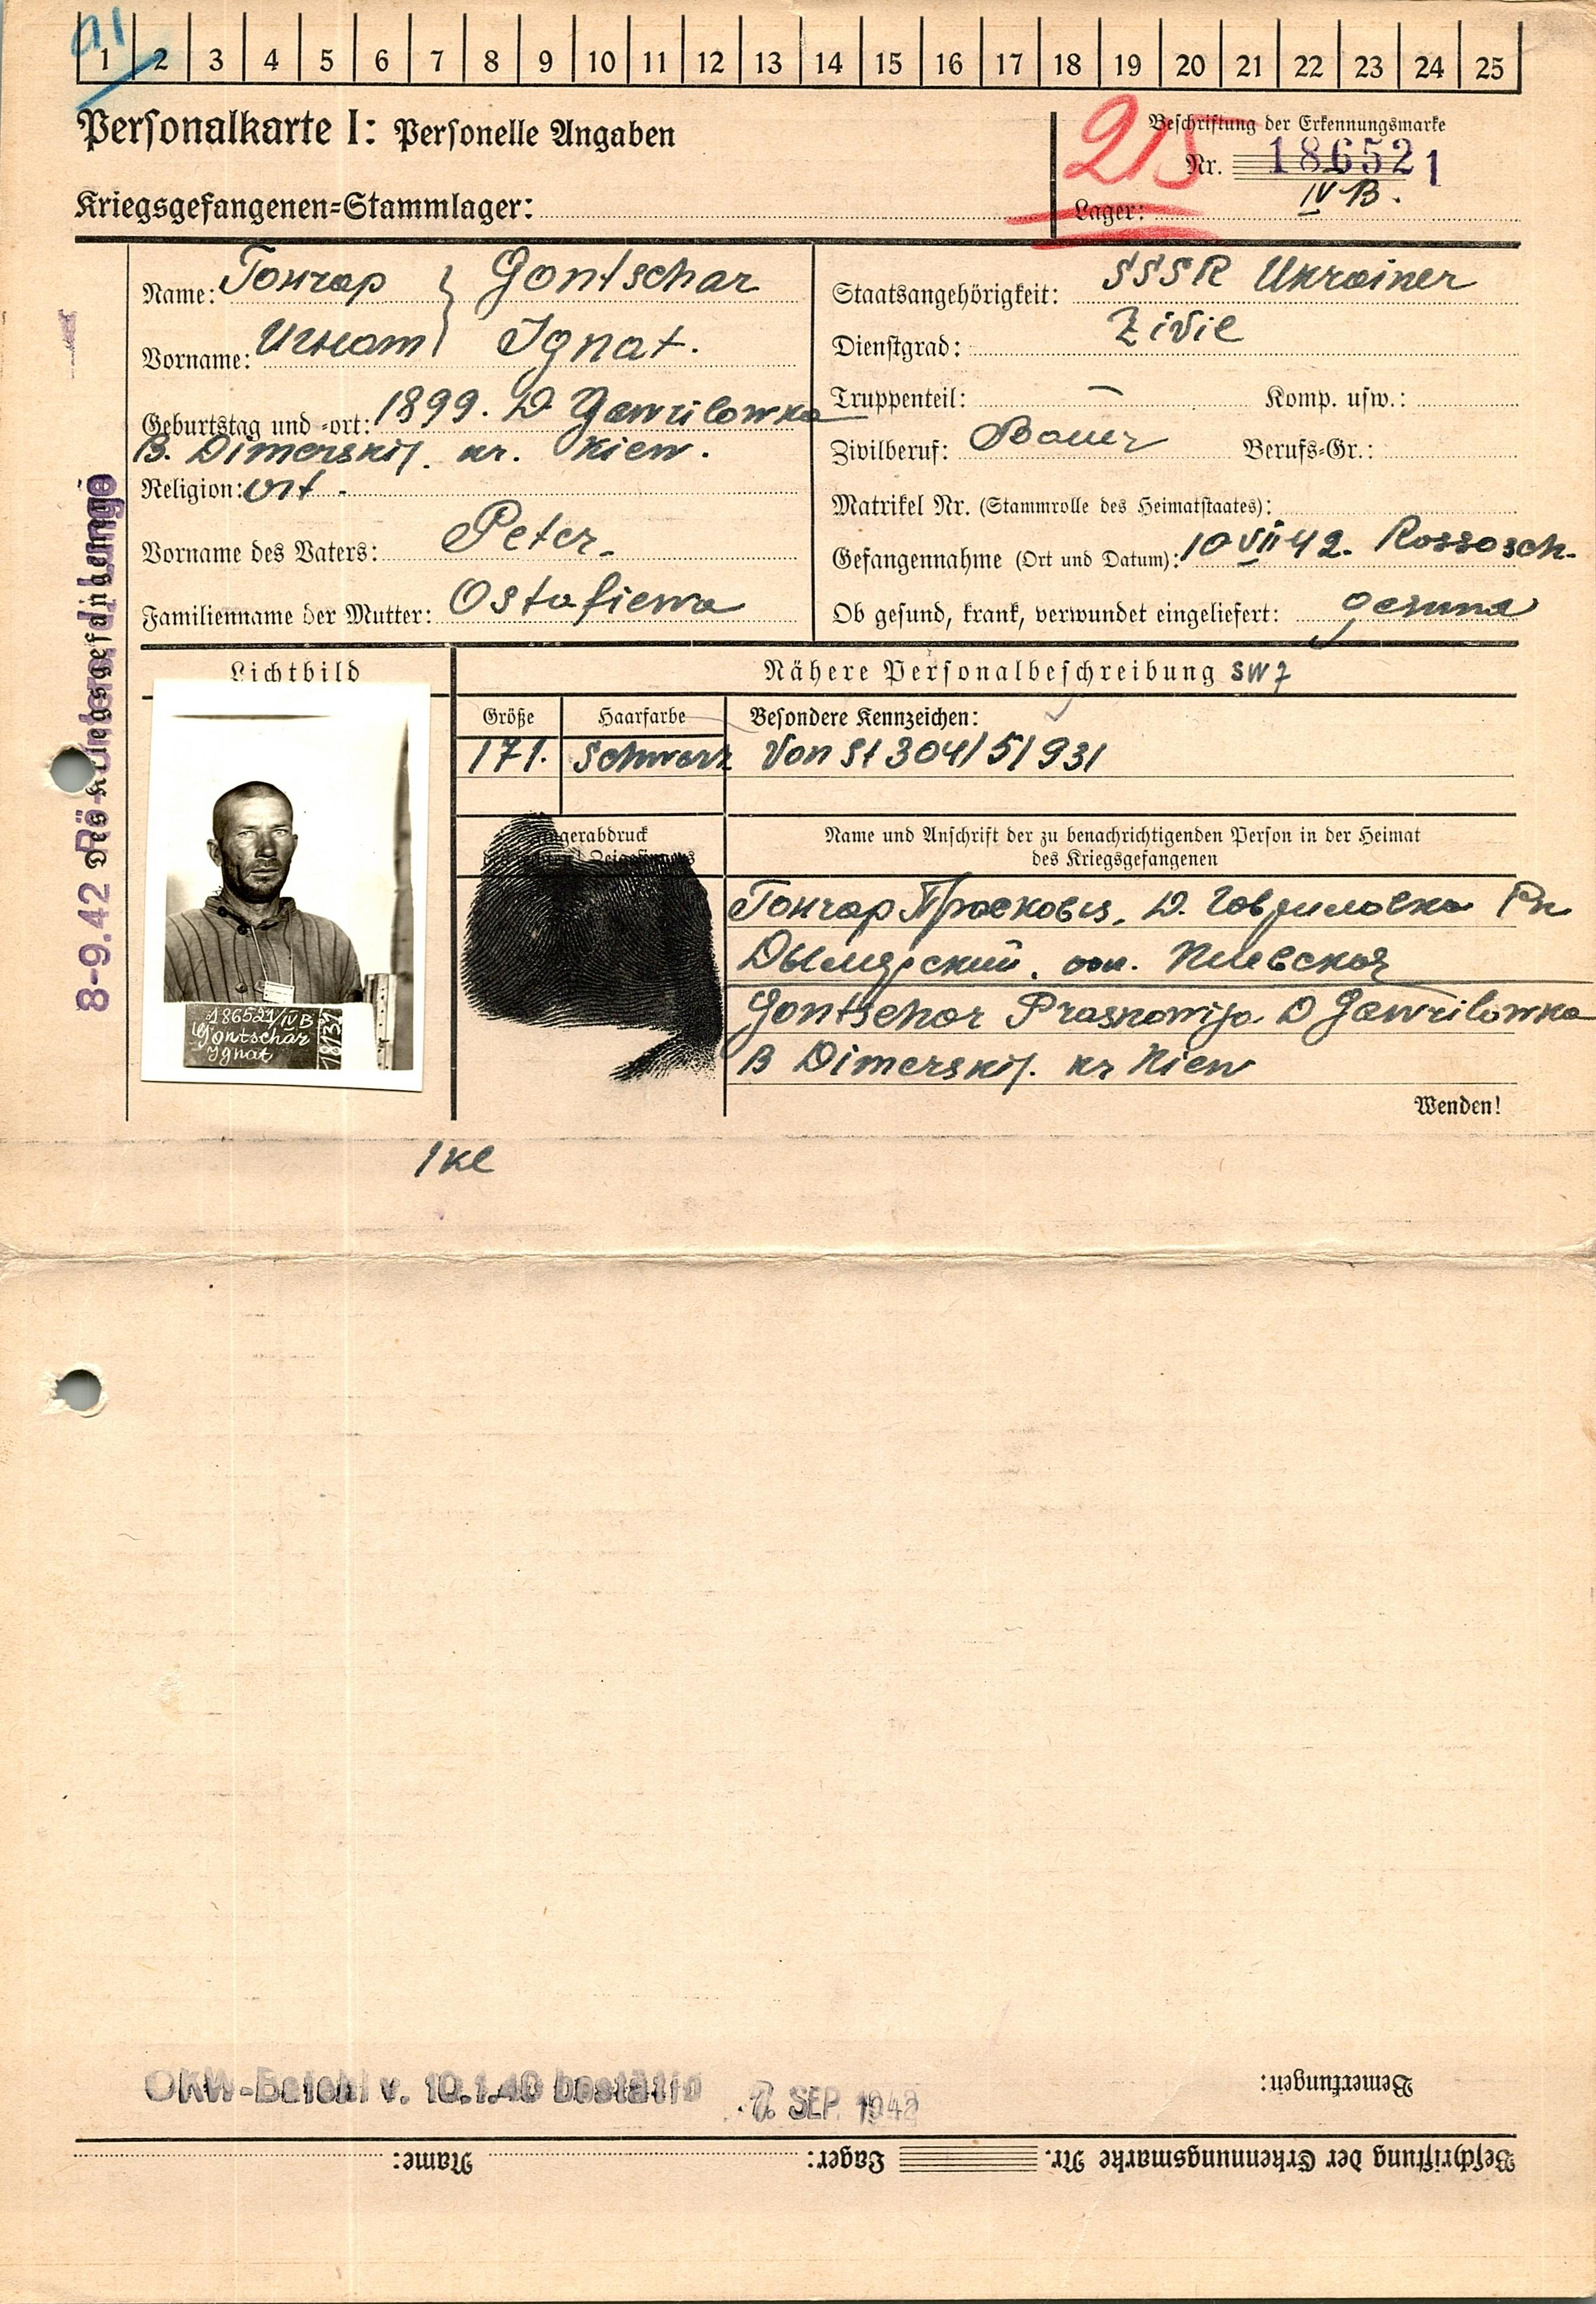 1 2 3 4 5 6 7 8 9 10 11 12 13 14 15 16 17 18 19 20 21 22 23 24 25
Personalkarte I: Personelle Angaben
Beschriftung der Erkennungsmarke
215
Nr. 186521
Kriegsgefangenen-Stammlager:
Lager: IV B.
Name: Гончар } Gontschar
Vorname: Игнат Ignat.
Geburtstag und -ort: 1899. D Gawrilowka
B. Dimerskij. kr. Kiew.
Religion: ort.
Vorname des Vaters: Peter.
Familienname der Mutter: Ostafiewa
Staatsangehörigkeit: SSSR Ukrainer
Dienstgrad: Zivil
Truppenteil: — Komp. usw.:
Zivilberuf: Bauer Berufs-Gr.:
Matrikel Nr. (Stammrolle des Heimatstaates):
Gefangennahme (Ort und Datum): 10 VII 42. Rossosch.
Ob gesund, krank, verwundet eingeliefert: gesund
8-9.42 Des Kriegsgefangenen
Lichtbild
Nähere Personalbeschreibung
Größe Haarfarbe Besondere Kennzeichen:
171. schwarz Von St 304/5/931
Fingerabdruck
Zeigefingers
Name und Anschrift der zu benachrichtigenden Person in der Heimat
des Kriegsgefangenen
Гончар Прасковия, Д. Гавриловка Рн
Дымерский, обл. Киевская
Gontschar Praskowija D Gawrilowka
B Dimerskij. kr Kiew
Wenden!
186521/IV B
Gontschar
Ignat
OKW-Befehl v. 10.1.40 bestätig
7. SEP. 1942
Bemerkungen:
Beschriftung der Erkennungsmarke Nr. Lager: Name: